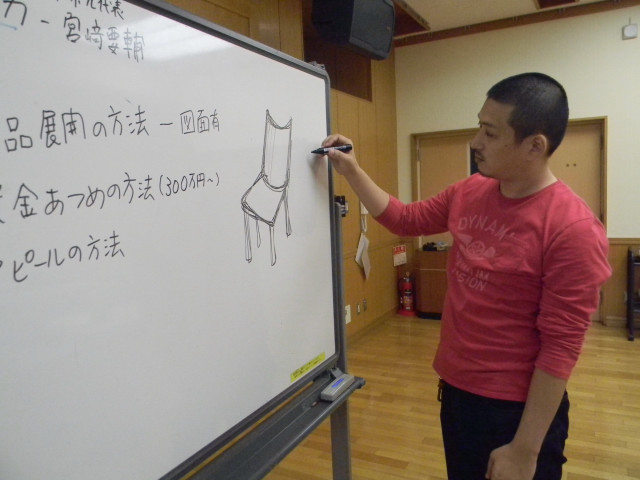 カー宮崎要輔
品展開の方法ー図面有
金あつめの方法(300万円〜)
ピールの方法
DYNAM